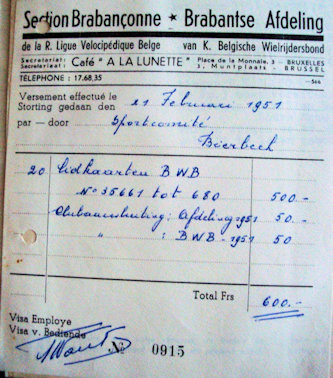 Section Brabançonne ★ Brabantse Afdeling
de la R. Ligue Velocipédique Belge van K. Belgische Wielrijdersbond
Secretariat: Secretariaat: Café "A LA LUNETTE" Place de la Monnaie, 3 — BRUXELLES
3, Muntplaats — BRUSSEL
TÉLÉPHONE : 17.68,35
Versement effectué le
Storting gedaan den 21 Februari 1951
par — door Sportcomité
Bierbeek
20 Lidkaarten BWB
N° 35661 tot 680 500.-
Clubaansluiting: Afdeling 1951 50.-
" : BWB - 1951 50.-
Total Frs 600.-
Visa Employe
Visa v. Bediende
№ 0915